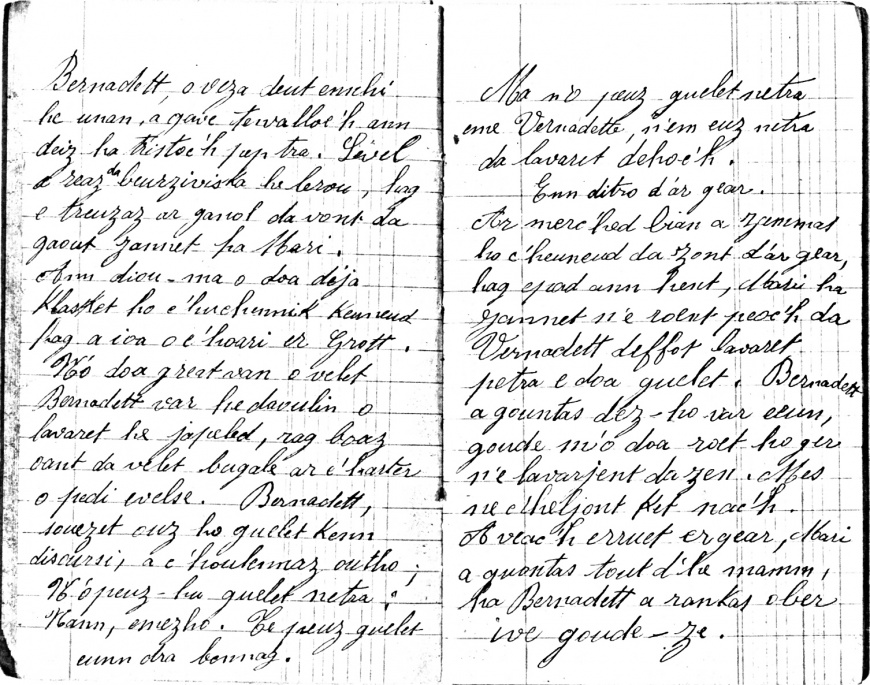 Bernadett, o veza deut ennhi
he unan, a gave tewalloc'h ann
deiz ha tristoc'h pep tra. Sevel
a reaz da beurziviska he lerou, hag
e treuzaz ar ganol da vont da
gaout Jannet ha Mari.
Ann diou-ma o doa déja
Klasket ho c'huchennik Keuneud
hag a ioa o c'hoari er Grott.
N'ó doa great van o velet
Bernadett var he daoulin o
lavaret he japeled, rag boaz
oant da velet bugale ar c'harter
o pedi evelse. Bernadett,
souezet ouz ho guelet Kenn
discursi, a c'houlennaz outho;
N'ópeuz-hu guelet netra?
Nann, emezho. Te peuz guelet
eunn dra bennag.
Ma n'ó peuz guelet netra
eme Vernadette, n'em euz netra
da lavaret dehoc'h.
Enn distro d'ar gear.
Ar merc'hed bian a zammas
ho c'heuneud da zont d'ar gear,
hag epad ann hent, Mari ha
Jannet n'e roent peoc'h da
Vernadett deffot lavaret
petra e doa guelet. Bernadett
a gountas dez-ho var eeun,
goude m'ó doa roet ho ger
n'e lavarjent da zen. Mes
ne c'heljont Ket nac'h.
A veac'h erruet er gear, Mari
a guontas tout d'he mamm,
ha Bernadett a rankas ober
ive goude-ze.